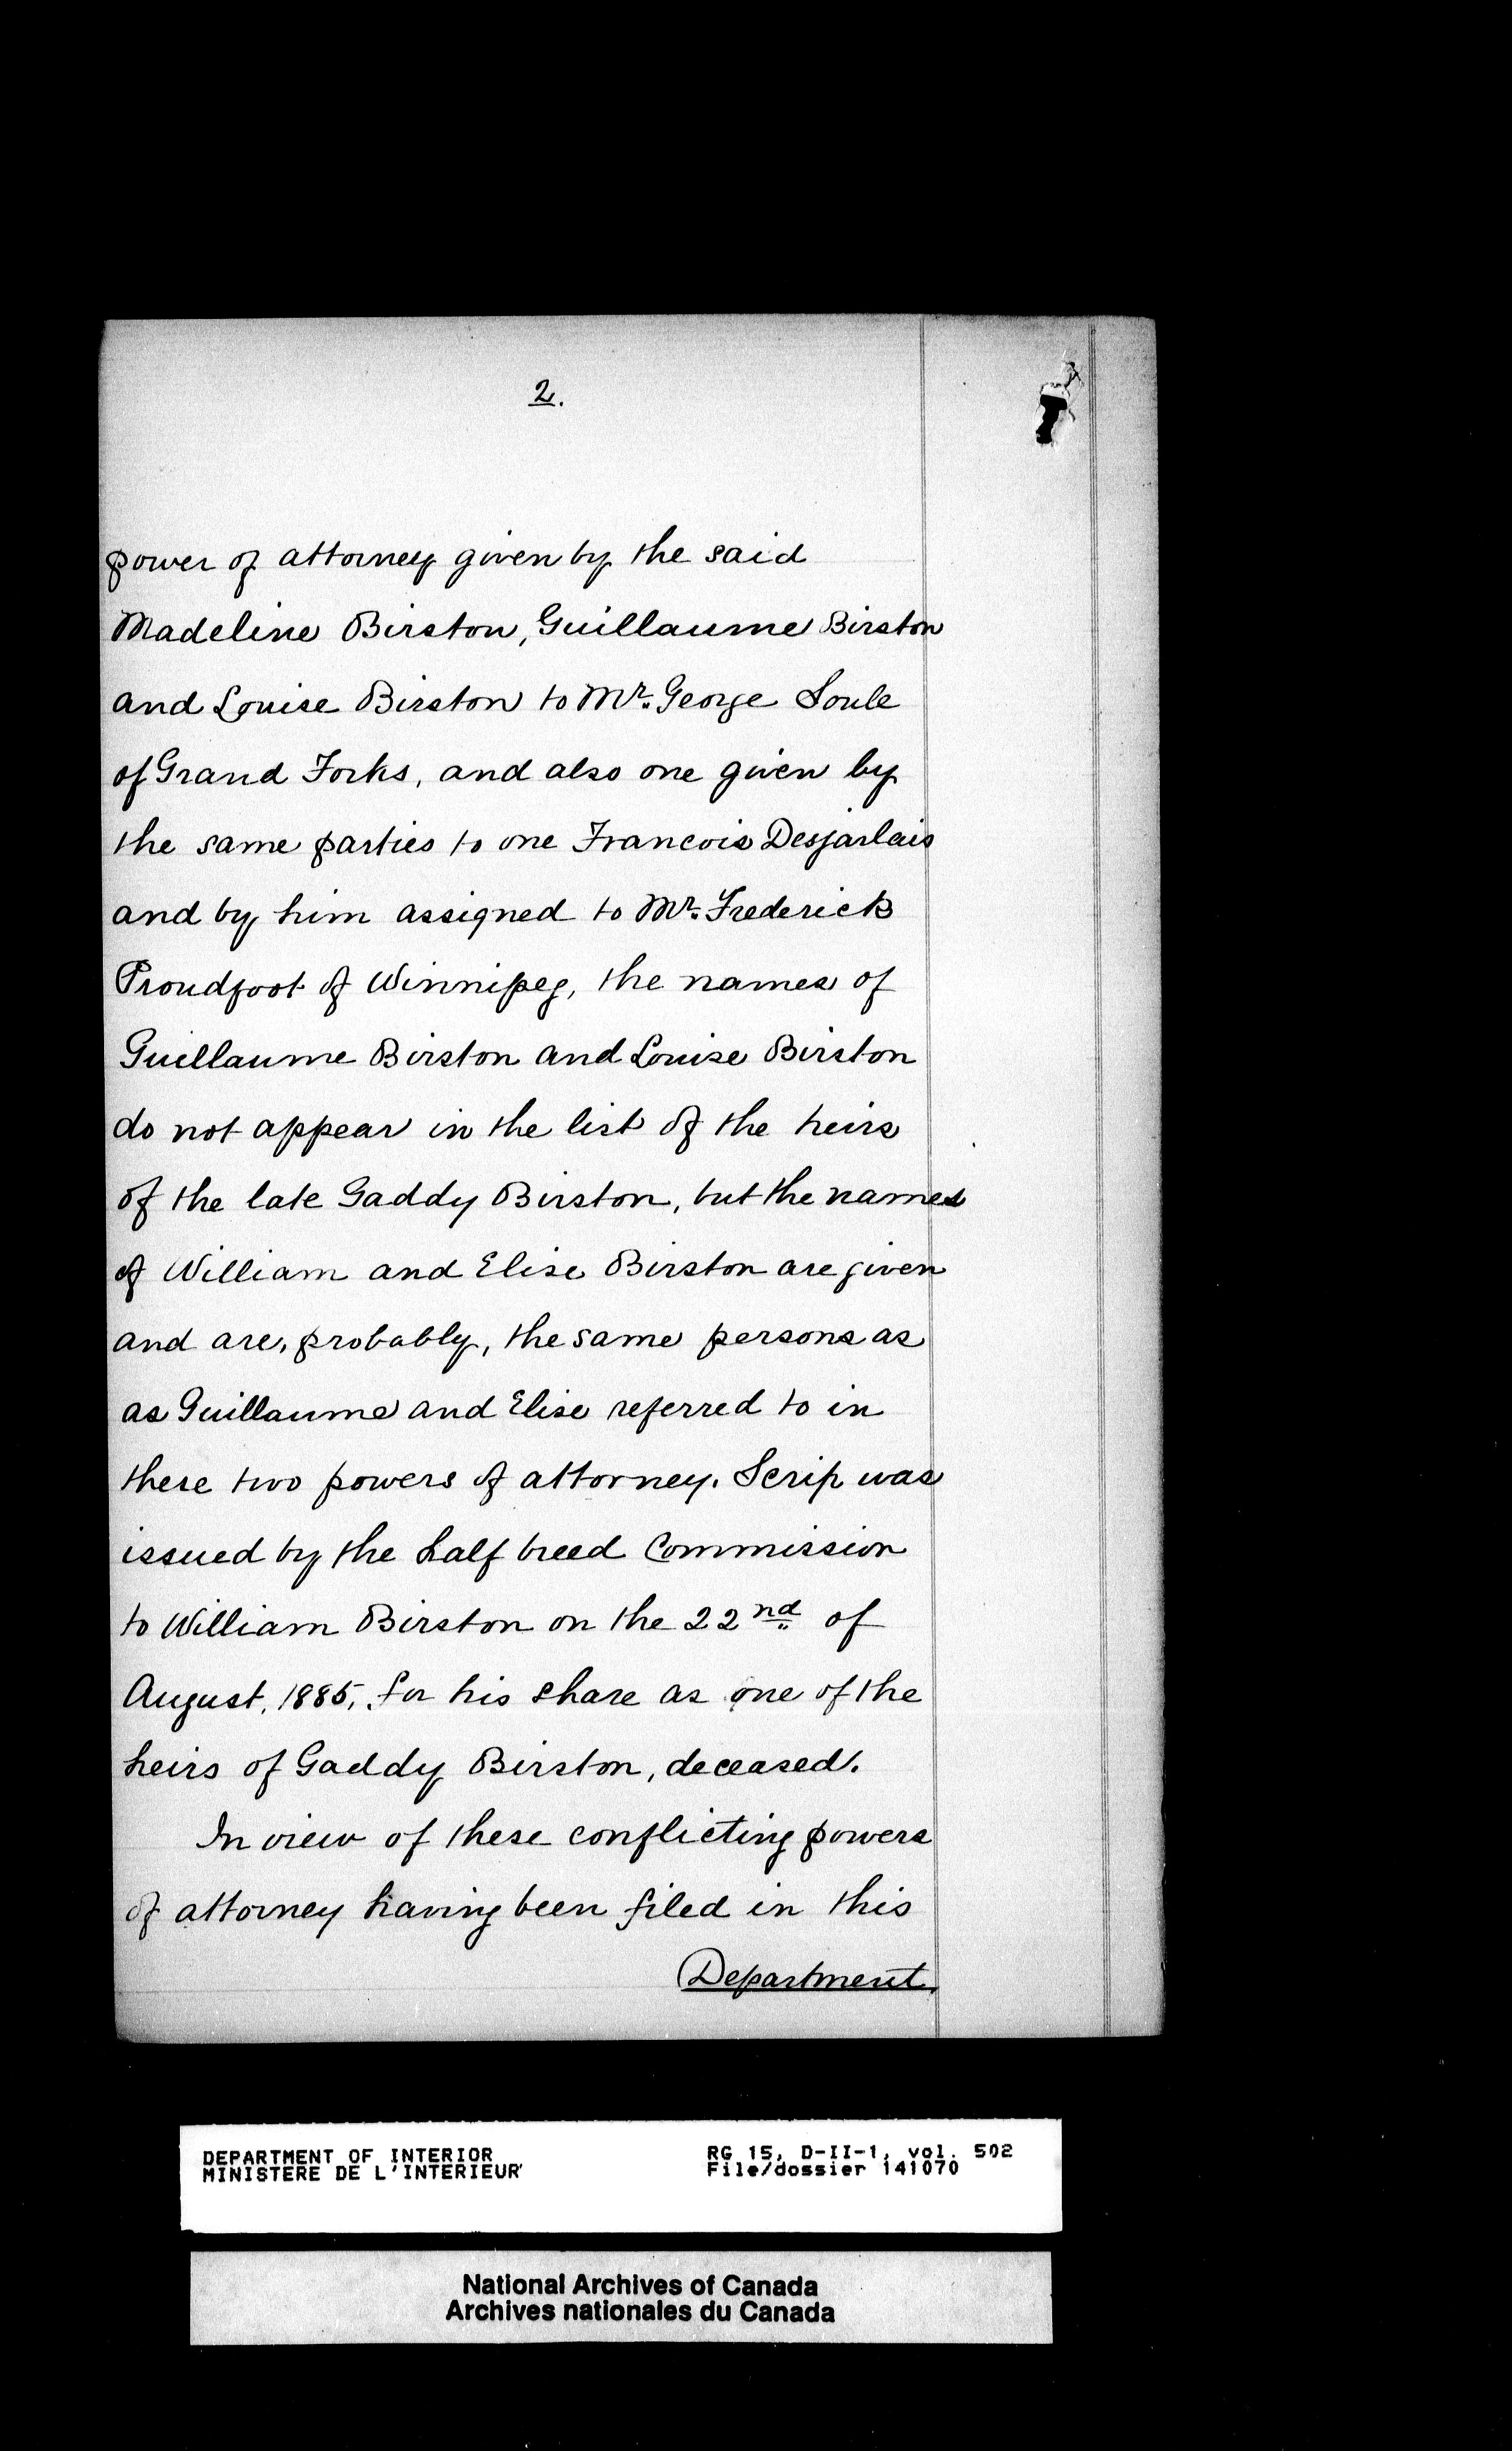 2.
power of attorney given by the said
Madeline Birston, Guillaume Birston
and Louise Birston to Mr. George Soule
of Grand Forks, and also one given by
the same parties to one Francois Desjarlais
and by him assigned to Mr. Frederick
Proudfoot of Winnipeg, the names of
Guillaume Birston and Louise Birston
do not appear in the list of the heirs
of the late Gaddy Birston, but the names
of William and Elise Birston are given
and are, probably, the same persons as
as Guillaume and Elise referred to in
these two powers of attorney. Scrip was
issued by the half breed Commission
to William Birston on the 22nd of
August, 1885, for his share as one of the
heirs of Gaddy Birston, deceased.
In view of these conflicting powers
of attorney having been filed in this
Department.
DEPARTMENT OF INTERIOR
MINISTERE DE L'INTERIEUR
RG 15, D-II-1, vol. 502
File/dossier 141070
National Archives of Canada
Archives nationales du Canada